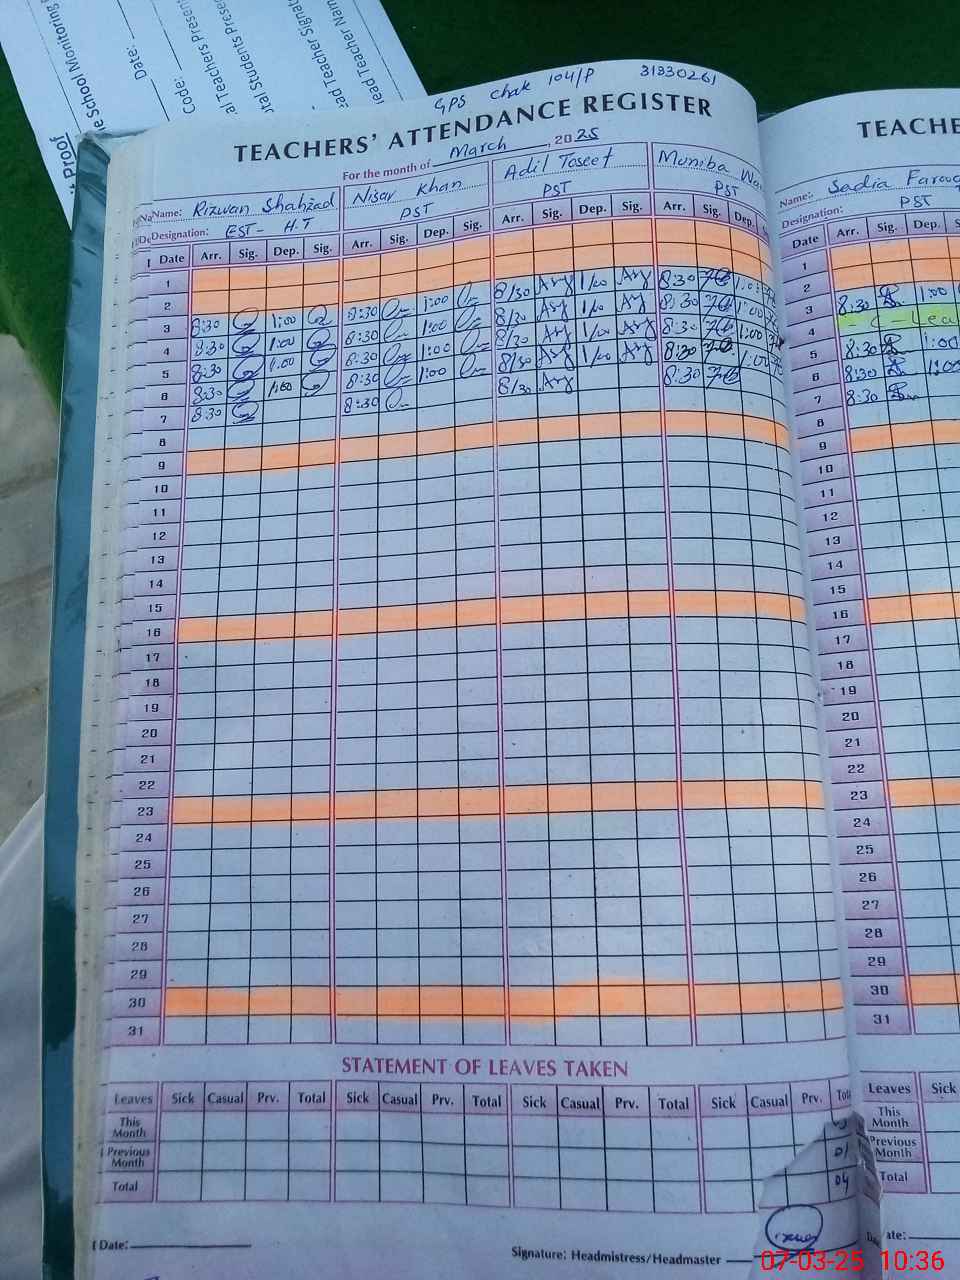 e School Monitoring
Proof
Date:
Code:
al Teachers Present
tal Students Present
ead Teacher Signat
Head Teacher Nam
GPS chak 104/P 31330261
TEACHERS' ATTENDANCE REGISTER
For the month of March, 2025
Name: Rizwan Shahzad Nisar Khan Adil Toseef Muniba Wa
Designation: EST- H.T PST PST PST
Date Arr. Sig. Dep. Sig. Arr. Sig. Dep. Sig. Arr. Sig. Dep. Sig. Arr. Sig. Dep.
1
2
3 8:30 1:00 8:30 1:00 8/30 1/00 8:30 1:00
4 8:30 1:00 8:30 1:00 8/30 1/00 8:30 1:00
5 8:30 1:00 8:30 1:00 8/30 1/00 8:30 1:00
6 8:30 1:00 8:30 1:00 8/30 1/00 8:30 1:00
7 8:30 8:30 8/30 8:30
8
9
10
11
12
13
14
15
16
17
18
19
20
21
22
23
24
25
26
27
28
29
30
31
STATEMENT OF LEAVES TAKEN
Leaves Sick Casual Prv. Total Sick Casual Prv. Total Sick Casual Prv. Total Sick Casual Prv. Tota
This Month
Previous Month 01
Total 04
Date:
Signature: Headmistress/Headmaster
TEACHE
Name: Sadia Farooq
Designation: PST
Date Arr. Sig. Dep. S
1
2
3 8:30 1:00
4 - C - Lea
5 8:30 1:00
6 8:30 1:00
7 8:30
8
9
10
11
12
13
14
15
16
17
18
19
20
21
22
23
24
25
26
27
28
29
30
31
Leaves Sick
This Month
Previous Month
Total
ate:
07-03-25 10:36